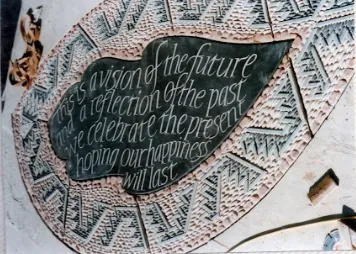 This is a vision of the future
and a reflection of the past
we celebrate the present
hoping our happiness
will last